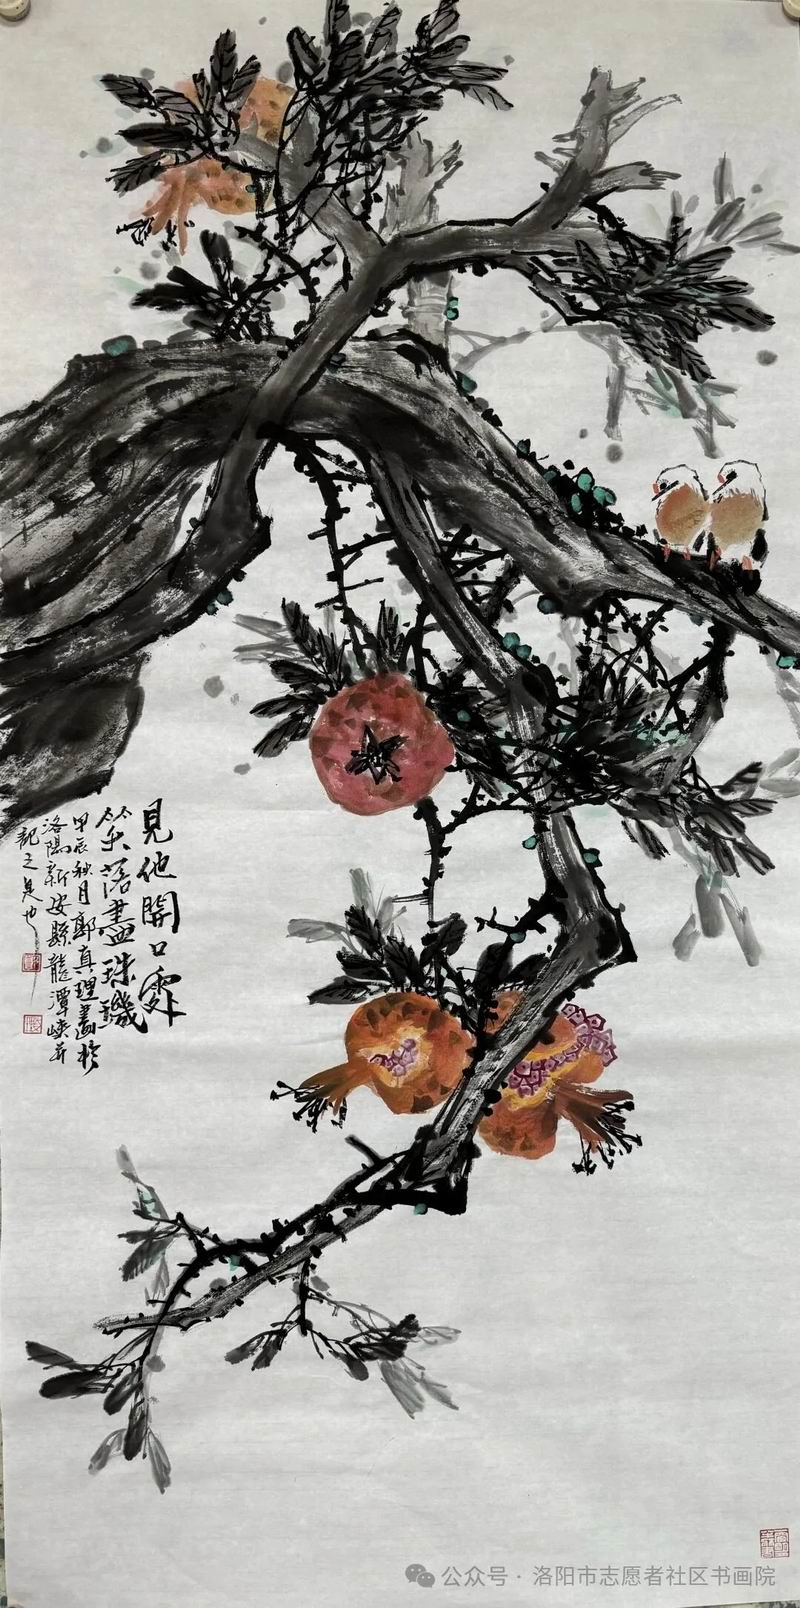 見他開口處
笑落盡珠璣
甲辰秋月郭真理畫於
洛陽新安縣龍潭峽并
記之是也
公众号 · 洛阳市志愿者社区书画院